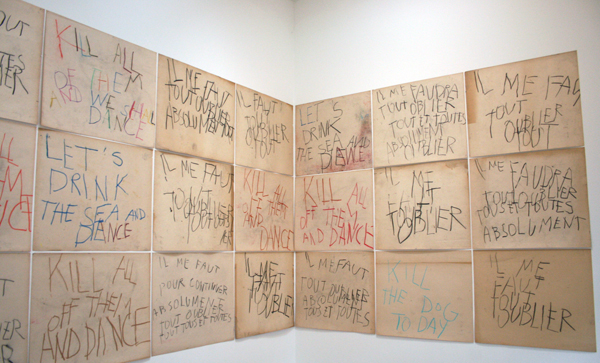 OUT
OUTES
LIER
KILL ALL
OF THEM
AND WE SHALL
DANCE
IL ME FAUT
TOUT OUBLIER
ABSOLUMENT
IL FAUT
TOUT
OUBLIER
LET'S
DRINK
THE SEA AND
DANCE
IL ME FAUDRA
TOUT OUBLIER
TOUT ET TOUTES
ABSOLUMENT
OUBLIER
IL ME FAUT
TOUT
OUBLIER
TOUT
ALL
THEM
DANCE
LET'S
DRINK
THE SEA AND
DANCE
IL ME FAUT
TOUT
OUBLIER
KILL ALL
OFF THEM
AND DANCE
KILL ALL
OFF THEM
AND DANCE
IL ME
FAUT
OUBLIER
IL ME FAUDRA
TOUT OUBLIER
TOUS ET TOUTES
ABSOLUMENT
KILL ALL
OFF THEM
AND DANCE
IL ME FAUT
POUR CONTINUER
ABSOLUMENT
TOUT OUBLIER
TOUT ET TOUTES
IL ME
FAUT
TOUT
OUBLIER
IL ME FAUT
TOUT OUBLIER
ABSOLUMENT
TOUS ET TOUTES
KILL
THE DOG
TO DAY
IL ME
FAUT
TOUT
OUBLIER